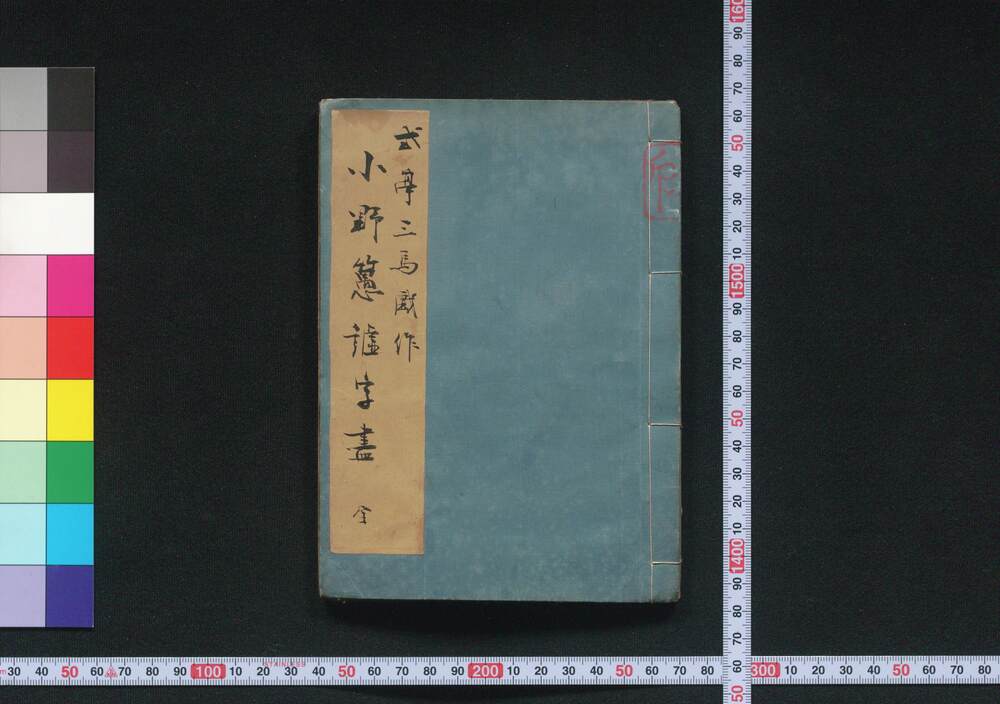 式亭三馬戯作
小野𥫱譃字盡 全
160
90
80
70
60
50
40
30
20
10
1500
90
80
70
60
50
40
30
20
10
1400
90
80
70
60
50
30 40 50 60 70 80 90 100 10 20 30 40 50 60 70 80 90 200 10 20 30 40 50 60 70 80 300 10 20 30 40 50 60 70 80
STAINLESS